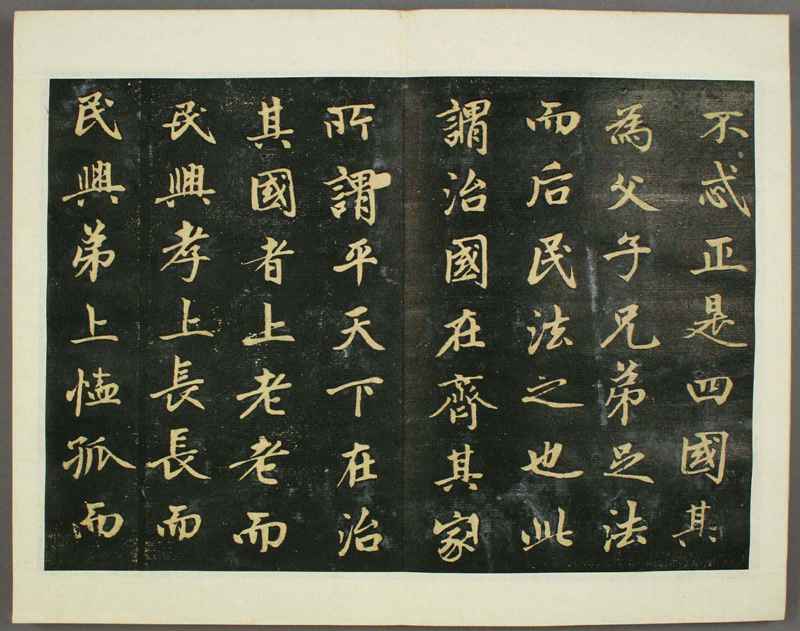 不忒正是四國其
為父子兄弟足法
而后民法之也此
謂治國在齊其家
所謂平天下在治
其國者上老老而
民興孝上長長而
民興弟上恤孤而